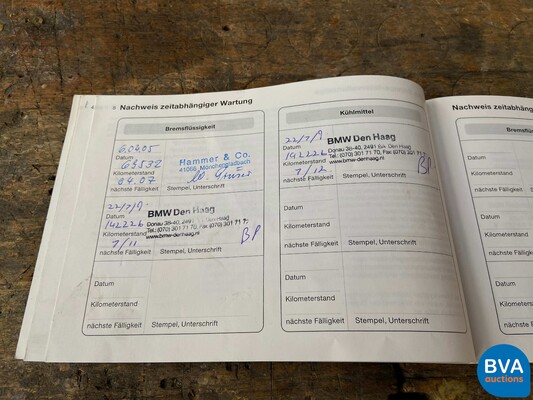 Nachweis zeitabhängiger Wartung
Bremsflüssigkeit
6.04.05
Datum
69532
Kilometerstand
04.07
nächste Fälligkeit
Hammer & Co.
41066 Mönchengladbach
Stempel, Unterschrift
22/7/9
Datum
142226
Kilometerstand
7/11
nächste Fälligkeit
BMW Den Haag
Donau 38-40, 2491
Tel.: (070) 301 71 70, Fax (070) 301 71 7
www.bmw-denhaag.nl
BP
Stempel, Unterschrift
Datum
Kilometerstand
nächste Fälligkeit Stempel, Unterschrift
Kühlmittel
22/7/9
Datum
142226
Kilometerstand
7/12
nächste Fälligkeit
BMW Den Haag
Donau 38-40, 2491 BA Den Haag
Tel.: (070) 301 71 70, Fax (070) 301
www.bmw-denhaag.nl
BP
Stempel, Unterschrift
Datum
Kilometerstand
nächste Fälligkeit Stempel, Unterschrift
Datum
Kilometerstand
nächste Fälligkeit Stempel, Unterschrift
Nachweis zeitabhäng
Br
Datum
Kilometerstand
nächste Fälligkeit
Datum
Kilometerstand
nächste Fälligkeit
Datum
Kilometerstan
nächste Fäl
BVA
auctions